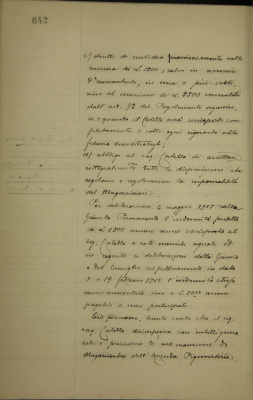 642
c) diritto di custodia provvisoriamente nella
misura di L. 1500, salvo in avvenire
d'aumentarla, in una o più volte,
sino al massimo di L. 2500 consentito
dall'art. 92 del Regolamento organico,
se e quando il Catella avrà corrisposto com-
pletamente e sotto ogni riguardo alla
fiducia dimostratagli;
d) obbligo al sig. Catella di accettare
integralmente tutte le disposizioni che
regolano e regoleranno la responsabilità
del Magazziniere.
Per deliberazione 4 maggio 1905 della
Giunta Permanente l'indennità predetta
di L. 1500 annue venne corrisposta al
sig. Catella a rate mensili uguali ed
in seguito a deliberazioni della Giunta
e del Consiglio rispettivamente in data
e 19 febbraio 1915 l'indennità stessa
venne aumentata sino a L. annue
pagabili a mesi posticipati.
Ciò premesso, tenuto conto che il sig.
rag. Catella disimpegna con intelligenza
zelo e precisione le sue mansioni di
Magazziniere dell'Azienda Pignoratizia